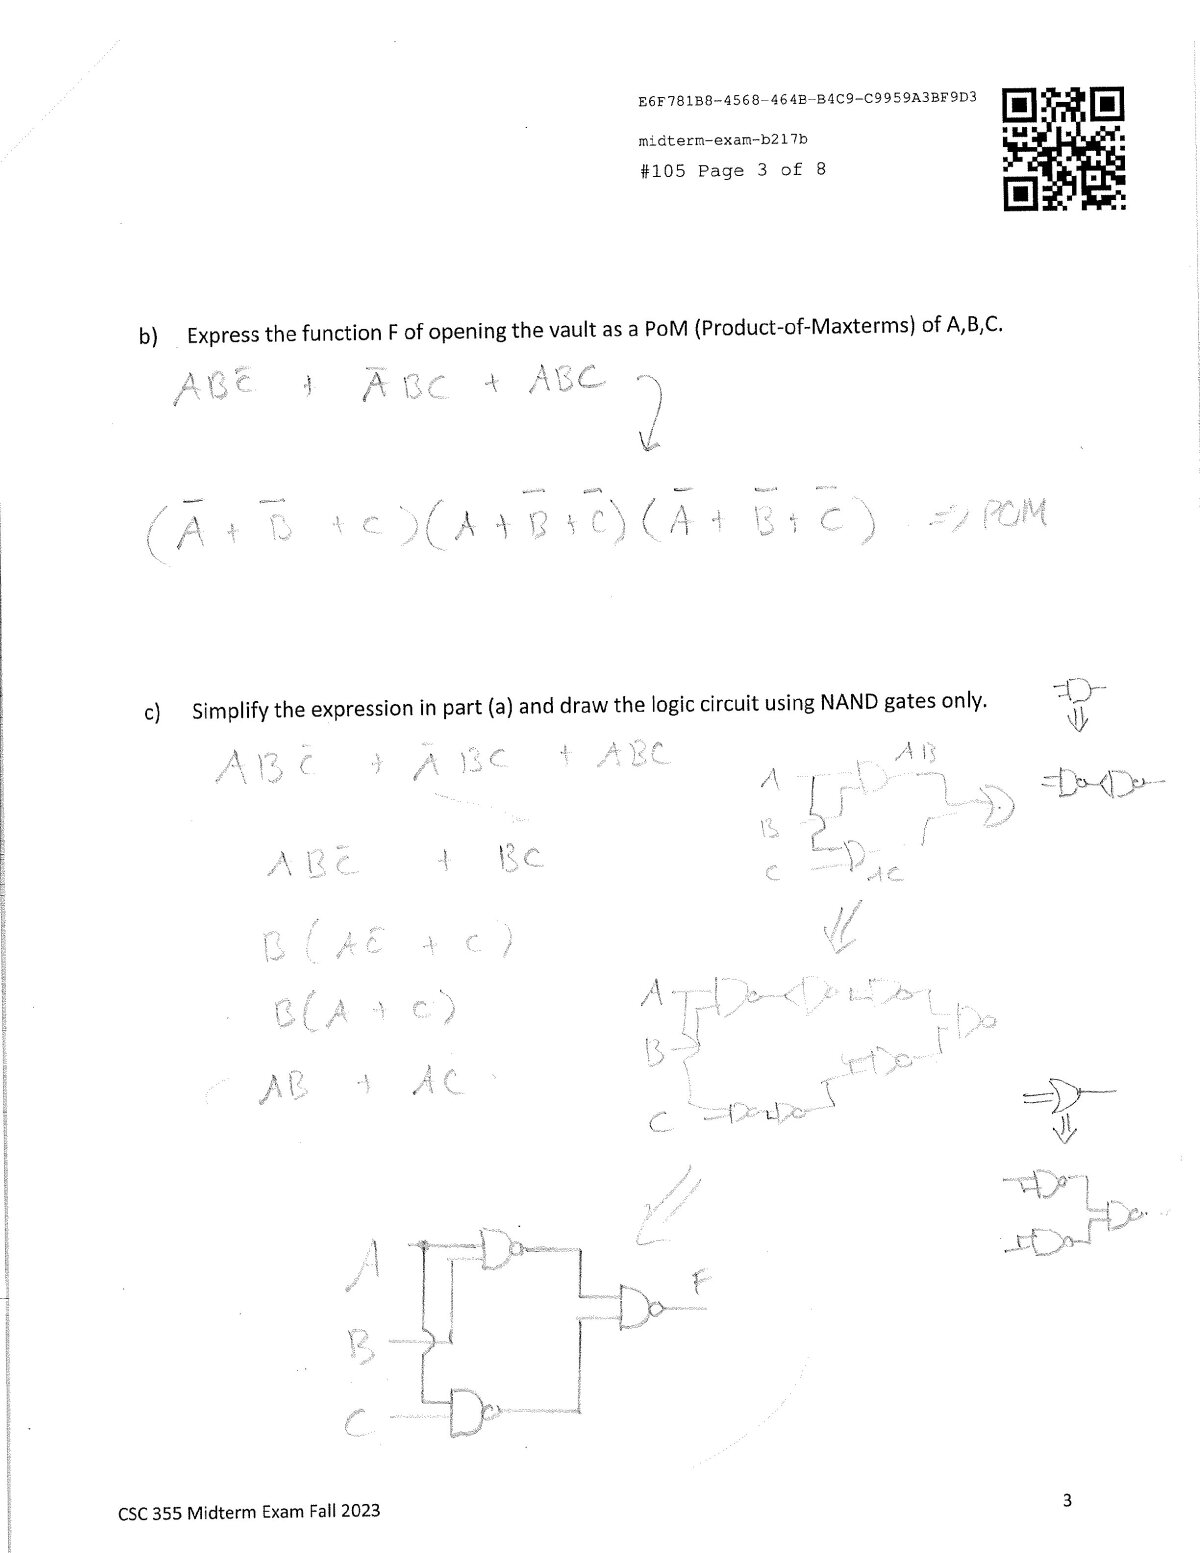 E6F781B8-4568-464B-B4C9-C9959A3BF9D3
midterm-exam-b217b
#105 Page 3 of 8
b) Express the function F of opening the vault as a PoM (Product-of-Maxterms) of A,B,C.
ABC̅ + A̅BC + ABC
(A̅ + B̅ + C)(A + B̅ + C̅)(A̅ + B̅ + C̅) => POM
c) Simplify the expression in part (a) and draw the logic circuit using NAND gates only.
ABC̅ + A̅BC + ABC
ABC̅ + BC
B(AC̅ + C)
B(A + C)
AB + AC
A
B
C
AB
AC
A
B
C
A
B
C
F
CSC 355 Midterm Exam Fall 2023
3